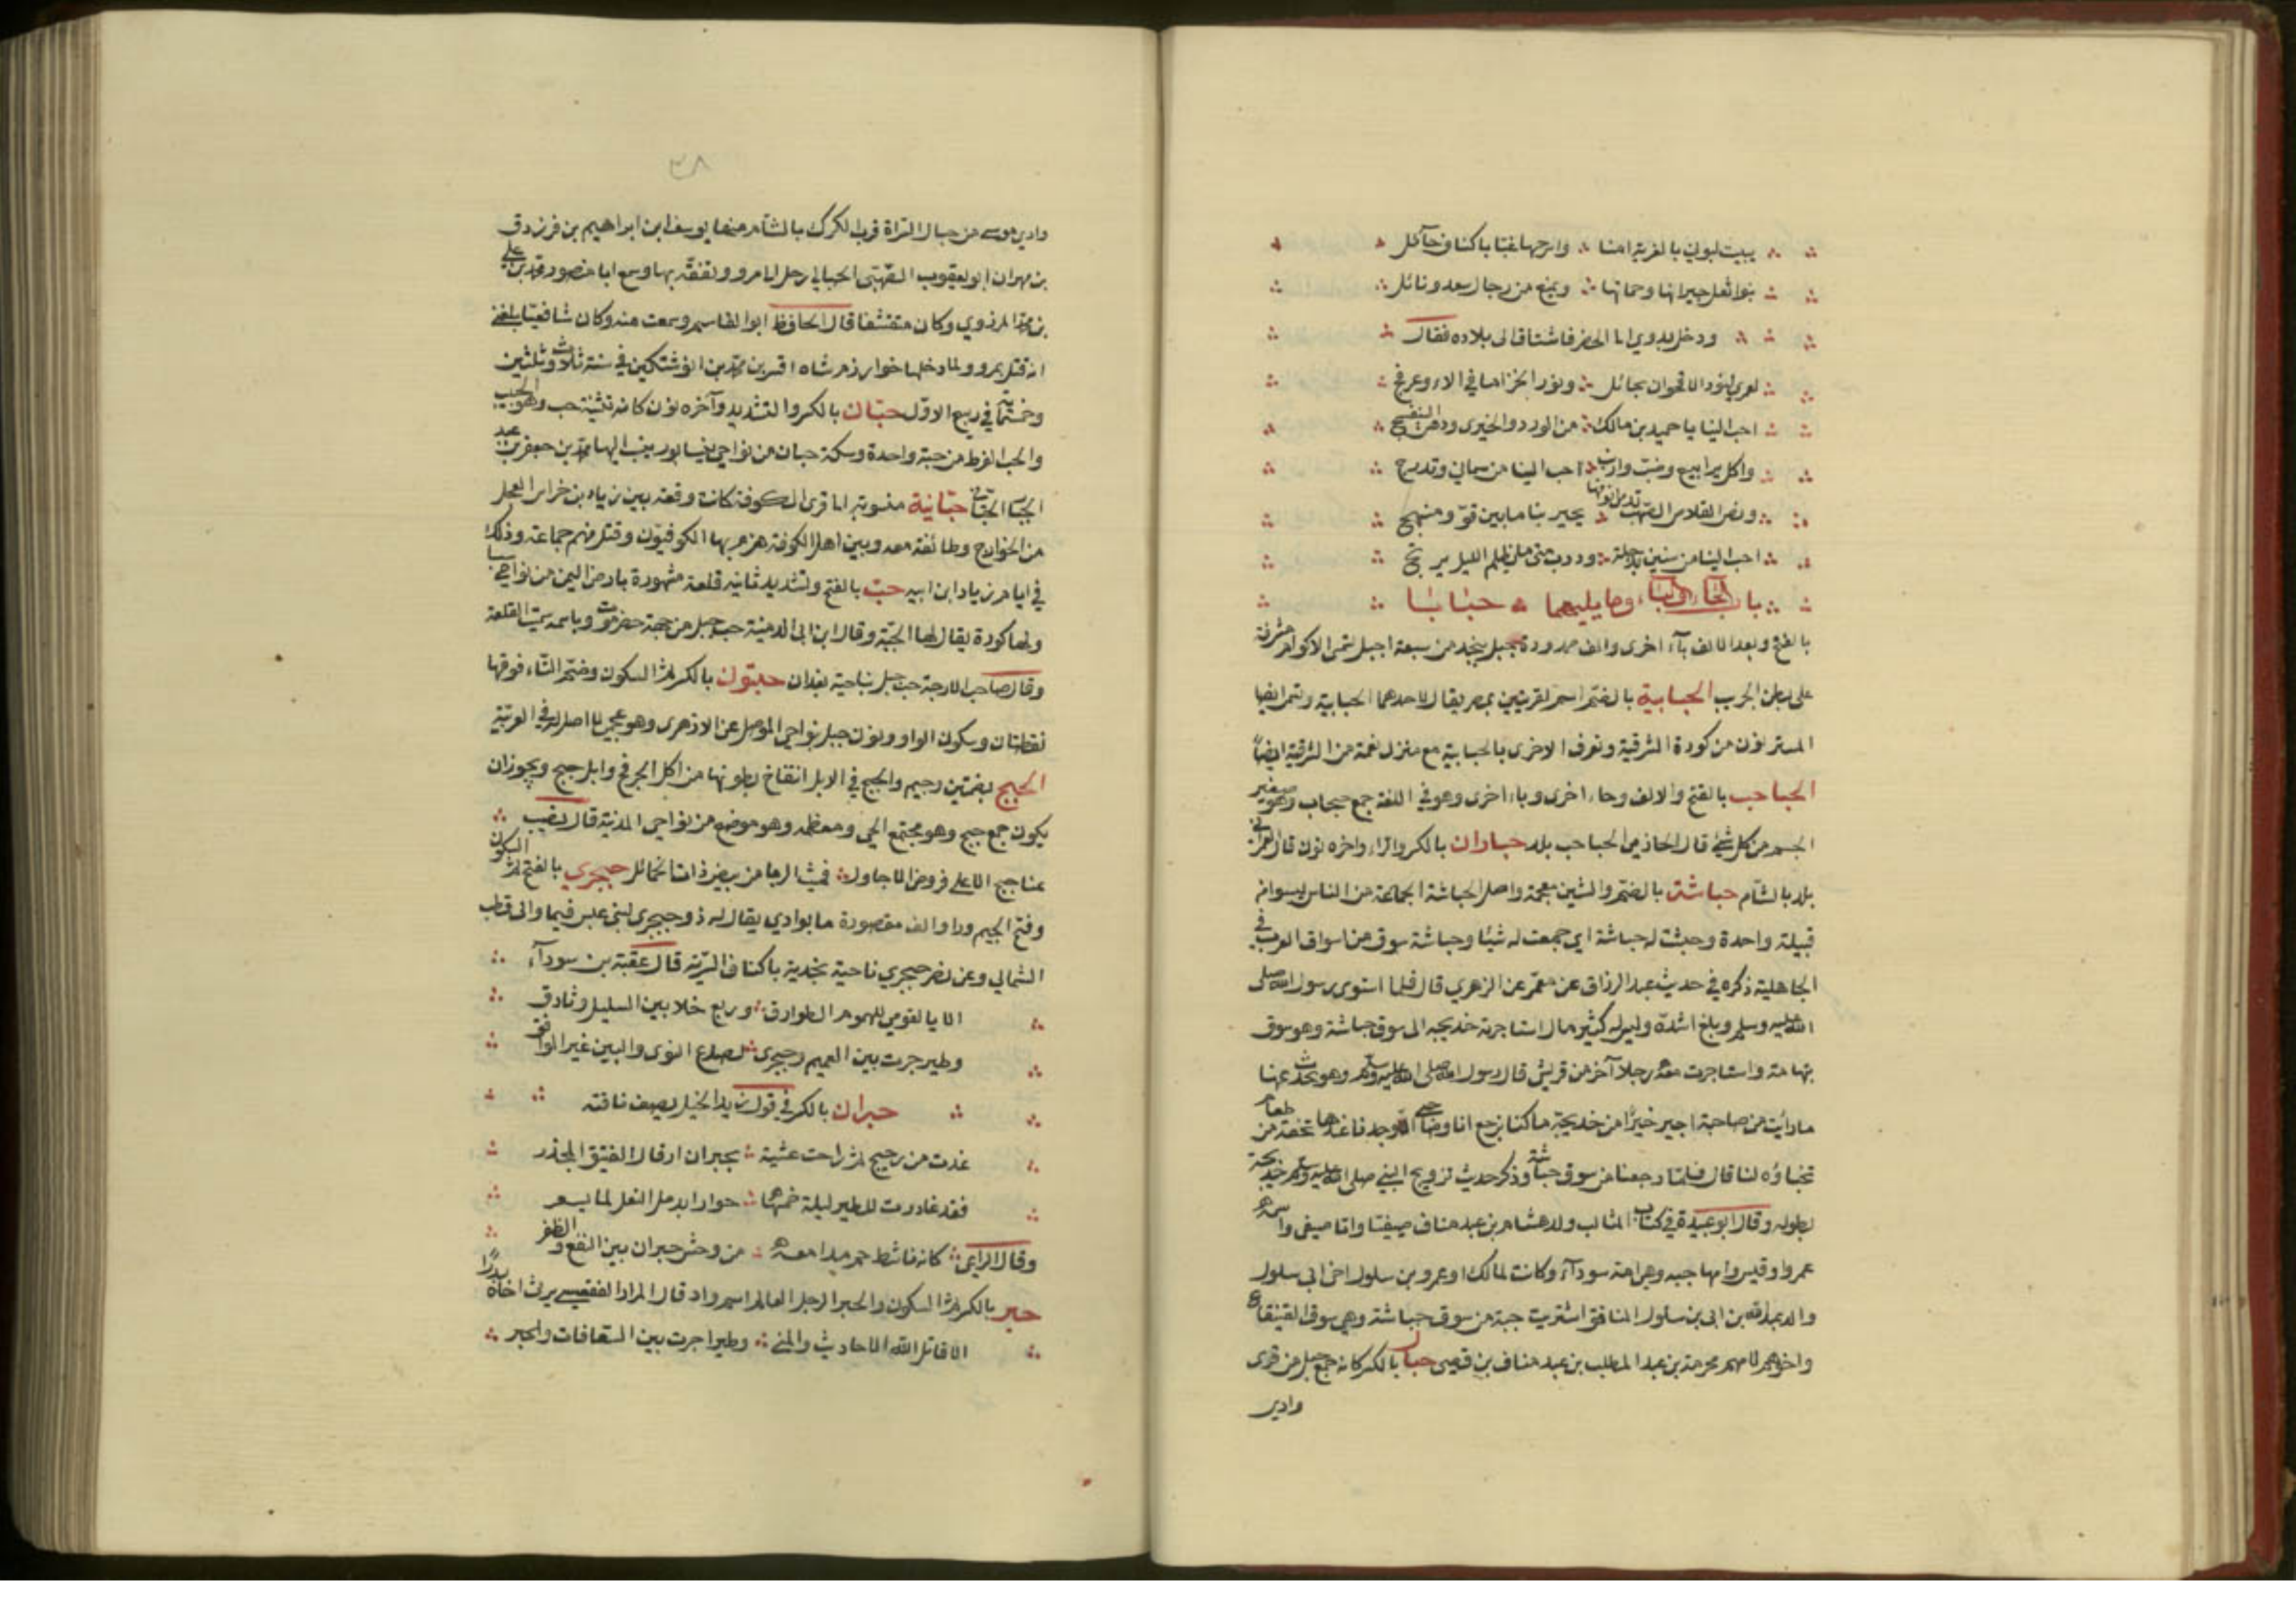 يبيت لبوني بالقرية امنا وارحها غبا باكناف حآئل
بنوا ثعل جيرانها وحماتها ويمنع من رجال سعد ونائل
ودخل بدوي الى الحضر فاشتاق الى بلاده فقال
لعمري لنور الاقحوان بحائل ونور الخزامى في الاء وعرفج
احب الينا يا حميد بن مالك من الورد والخيرى ودهن البنفسج
واكل يرابيع وضب وارنب احب الينا من سماني وتدرج
ونص القلاص الصهب تدمى انوفها يجبن بنا ما بين قو ومنعج
احب الينا من سفين بدجلة ودرب متى ما يظلم الليل يرتج
باب الحاء والباء وما يليهما حبابا
بالفتح وبعد الالف بآء اخرى والف ممدودة جبل بنجد من سبعة اجبل تسمى الاكوام مشرفة
على بطن الجريب الحبابية بالضم اسم لقريتين بمصر يقال لاحدهما الحبابية وتسمى ايضا
المستريون من كورة الشرقية وتعرف الاخرى بالحبابية مع منزل نعمة من الشرقية ايضاً
الحباحب بالفتح والالف وحاء اخرى وباء اخرى وهو في اللغة جمع حبحاب وهو صغير
الجسم من كل شئ قال الحازمي الحباحب بلد حباران بالكسر والراء واخره نون قال العمرانى
بلد بالشام حباشة بالضم والشين معجمة واصل الحباشة الجماعة من الناس ليسوا من
قبيلة واحدة وحبشت له حباشة اي جمعت له شيئا وحباشة سوق من اسواق العرب في
الجاهلية ذكره في حديث عبد الرزاق عن معمر عن الزهري قال فلما استوى رسول الله صلى
الله عليه وسلم وبلغ اشده وليس له كثير مال استاجرته خديجة الى سوق حباشة وهو سوق
بتهامة واستاجرت معه رجلا آخر من قريش قال رسول الله صلى الله عليه وسلم وهو يحدث عنها
ما رايت من صاحبة اجير خيرًا من خديجة ما كنا نرجع انا وصاحبي الا وجدنا عندها تحفة من طعام
تخباؤه لنا قال فلما رجعنا من سوق حباشة وذكر حديث تزويج النبي صلى الله عليه وسلم خديجة
بطوله وقال ابو عبيدة في كتاب المثالب ولد هشام بن عبد مناف صيفيا وابا صيفي واسمه
عمرو او قيس وامها حبيه وهي امة سودآء وكانت لمالك او عمرو بن سلول اخي ابي سلول
والد عبد الله بن ابى بن سلول المنافق اشتريت حبة من سوق حباشة وهي سوق القينقاع
واخوهم لامهم مخرمة بن عبد المطلب بن عبد مناف بن قصى حبال بالكسر كانه جمع حبل من قرى
وادى
٣٨
وادى موسى من جبال السراة قرب الكرك بالشام منها يوسف ابن ابراهيم بن فرزدق
بن مهران ابو يعقوب الصهبي الحبالي رحل الى مرو وتفقه بها وسمع ابا منصور محمد بن علي
بن محمد المروزي وكان متقشفا قال الحافظ ابو القاسم وسمعت منه وكان شافعيا بلغني
انه قتل بمرو ولما دخلها خوارزم شاه اقسز بن محمد بن انوشتكين في سنة ثلاث وثلثين
وخمسمائة في ربيع الاول حبان بالكسر والتشديد وآخره نون كانه تثنية حب وهو الحبيب
والحب القرط من حبة واحدة وسكة حبان من نواحي نيسابور ينسب اليها محمد بن جعفر بن عبد
الجبار الحباني حبانية منسوبة الى قرى الكوفة كانت وقعة بين زياد بن خراش العجلي
من الخوارج وطائفة معه وبين اهل الكوفة هزم بها الكوفيون وقتل منهم جماعة وذلك
في ايام زياد ابن ابيه حب بالفتح وتشديد ثانيه قلعة مشهورة بارض اليمن من نواحي سبا
ولها كورة يقال لها الحبية وقال ابن ابي الدمينة حب جبل من جهة حضرموت وباسمه سميت القلعة
وقال صاحب الاترجة حب جبل بناحية بعدان حبتون بالكسر ثم السكون وضم التاء فوقها
نقطتان وسكون الواو ونون جبل بنواحي الموصل عن الازهرى وهو عجمي لا اصل له في العربية
الحبج بضمتين وجيم والحبج في الابل انتفاخ بطونها من اكل العرفج وابل حبج ويجوز ان
يكون جمع حبج وهو مجتمع الحي ومعظمه وهو موضع من نواحي المدينة قال نصيب
عفا حبج الاعلى فروض الاجاول فميث الربا من بيض ذات الخمائل حبجري بالفتح ثم السكون
وفتح الجيم ورا والف مقصورة ما بوادي يقال له ذو حبجرى لبنى عبس فيما والى قطن
الشمالي وعن نصر حبجري ناحية نجدية باكناف الشربة قال عقبة بن سودآء
الا يا لقومي للهموم الطوارق وربع خلا بين السليل وثادق
وطير جرت بين الغميم وحبجرى لصدع النوى والبين غير الموافق
حبران بالكسر في قول زيد الخيل يصف ناقته
غدت من زخيخ ثم راحت عشية بحبران ارقال الفنيق المجفر
فقد غادرت للطير ليلة خمسها حوارا برمل النغل لما يسعر
وقال الراعي كانه ناشط حم مدامعه من وحش حبران بين النقع والظفر
حبر بالكسر ثم السكون والحبر الرجل العالم اسم واد قال المرار الفقعسي يرث اخاه بدرًا
الا قاتل الله الاحاديث والمنى وطيرا جرت بين السعافات والحبر